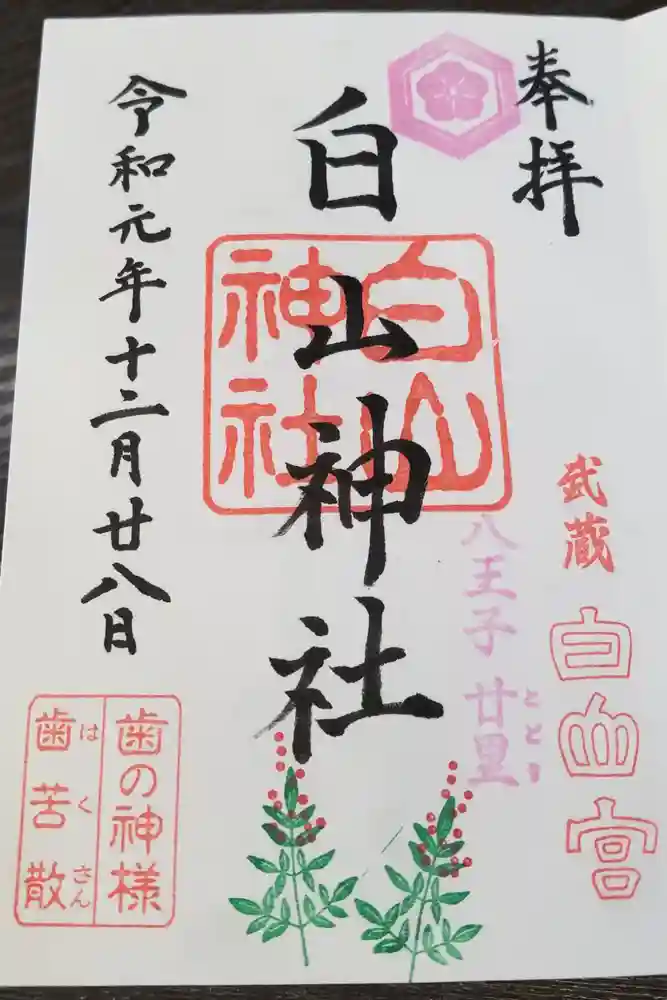 奉拝
武蔵
白山宮
八王子 廿里
ととり
白山神社
白山
神社
令和元年十二月廿八日
歯の神様
歯苦散
はくさん